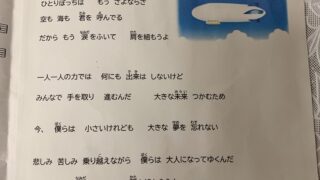 ひとりぼっちは もう さよならさ
空も 海も 君を 呼んでる
だから もう 涙をふいて 肩を組もうよ
一人一人の力では 何にも 出来は しないけど
みんなで 手を取り 進むんだ 大きな未来 つかむため
今、 僕らは 小さいけれども 大きな 夢を 忘れない
悲しみ 苦しみ 乗り越えながら 僕らは 大人になってゆくんだ